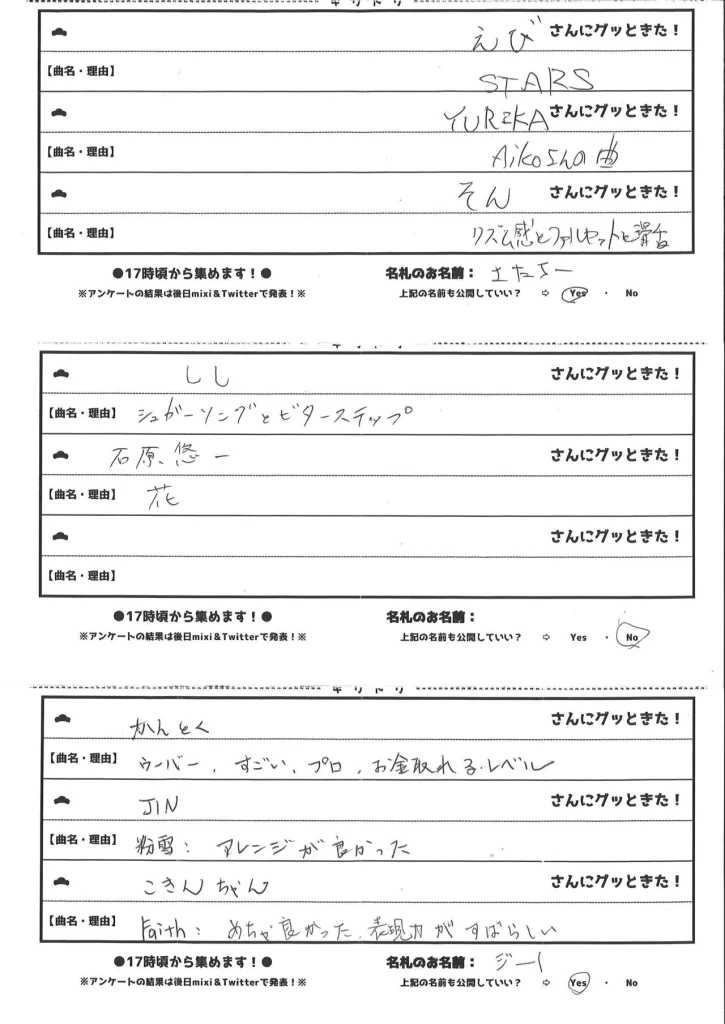 キリトリ
えび さんにグッときた！
【曲名・理由】 STARS
YUREKA さんにグッときた！
【曲名・理由】 Aikoさんの曲
そん さんにグッときた！
【曲名・理由】 リズム感とファルセットと滑舌
●17時頃から集めます！● 名札のお名前：
※アンケートの結果は後日mixi＆Twitterで発表！※ 上記の名前も公開していい？ ⇨ Yes ・ No
キリトリ
しし さんにグッときた！
【曲名・理由】 シュガーソングとビターステップ
石原、悠一 さんにグッときた！
【曲名・理由】 花
さんにグッときた！
【曲名・理由】
●17時頃から集めます！● 名札のお名前：
※アンケートの結果は後日mixi＆Twitterで発表！※ 上記の名前も公開していい？ ⇨ Yes ・ No
キリトリ
かんとく さんにグッときた！
【曲名・理由】 ウーバー、すごい、プロ、お金取れるレベル
JIN さんにグッときた！
【曲名・理由】 粉雪： アレンジが良かった
こきんちゃん さんにグッときた！
【曲名・理由】 Faith： めちゃ良かった、表現力がすばらしい
●17時頃から集めます！● 名札のお名前：
※アンケートの結果は後日mixi＆Twitterで発表！※ 上記の名前も公開していい？ ⇨ Yes ・ No